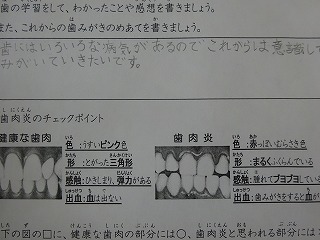 歯の学習をして、わかったことや感想を書きましょう。
また、これからの歯みがきのめあてを書きましょう。
歯にはいろいろな病気があるのでこれからは意識して
みがいていきたいです。
歯肉炎のチェックポイント
健康な歯肉
色：うすいピンク色
形：とがった三角形
感触：ひきしまり、弾力がある
出血：血は出ない
歯肉炎
色：赤っぽいむらさき色
形：まるくふくらんでいる
感触：腫れてブヨブヨしている
出血：歯みがきをすると血が
下の図の□に、健康な歯肉の部分には○、歯肉炎と思われる部分には